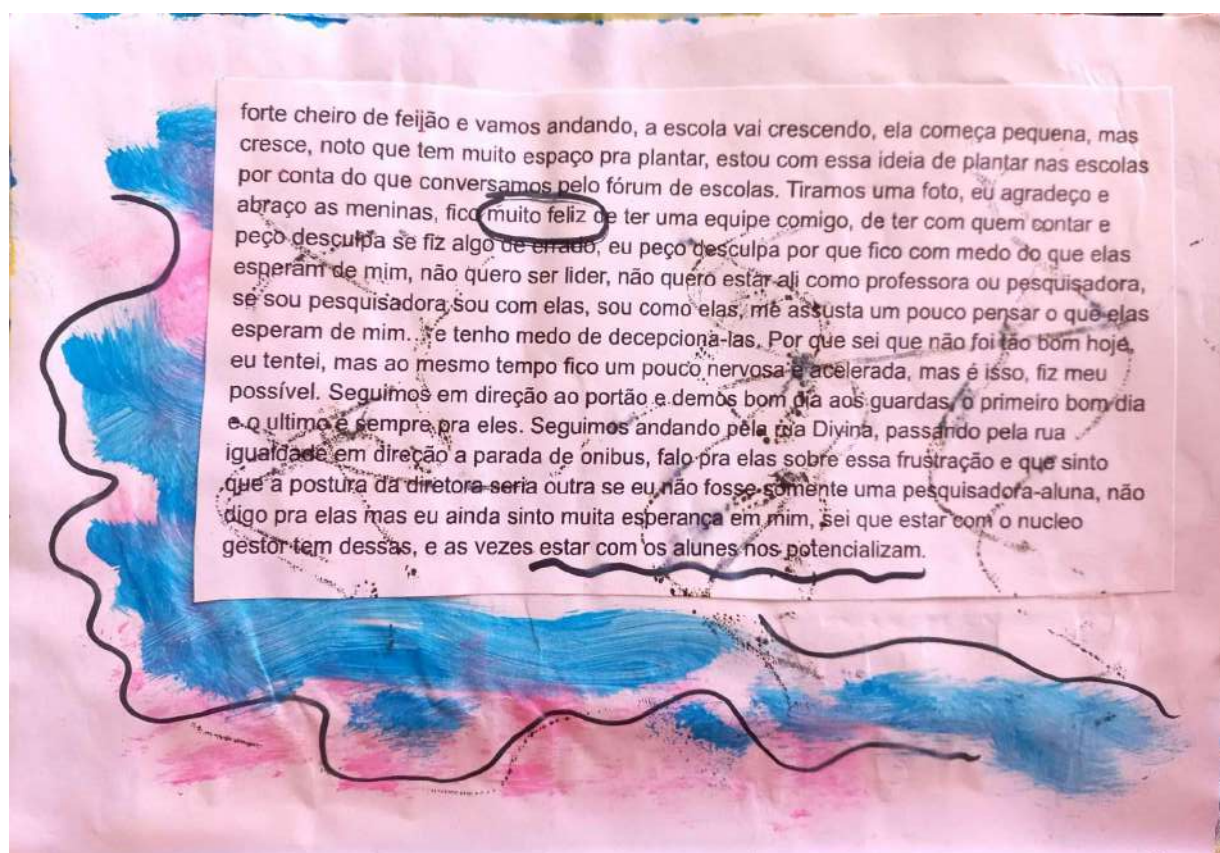 forte cheiro de feijão e vamos andando, a escola vai crescendo, ela começa pequena, mas
cresce, noto que tem muito espaço pra plantar, estou com essa ideia de plantar nas escolas
por conta do que conversamos pelo fórum de escolas. Tiramos uma foto, eu agradeço e
abraço as meninas, fico muito feliz de ter uma equipe comigo, de ter com quem contar e
peço desculpa se fiz algo de errado, eu peço desculpa por que fico com medo do que elas
esperam de mim, não quero ser lider, não quero estar ali como professora ou pesquisadora,
se sou pesquisadora sou com elas, sou como elas, me assusta um pouco pensar o que elas
esperam de mim... e tenho medo de decepciona-las. Por que sei que não foi tão bom hoje,
eu tentei, mas ao mesmo tempo fico um pouco nervosa e acelerada, mas é isso, fiz meu
possível. Seguimos em direção ao portão e demos bom dia aos guardas, o primeiro bom dia
e o ultimo é sempre pra eles. Seguimos andando pela rua Divina, passando pela rua
igualdade em direção a parada de onibus, falo pra elas sobre essa frustração e que sinto
que a postura da diretora seria outra se eu não fosse somente uma pesquisadora-aluna, não
digo pra elas mas eu ainda sinto muita esperança em mim, sei que estar com o nucleo
gestor tem dessas, e as vezes estar com os alunes nos potencializam.